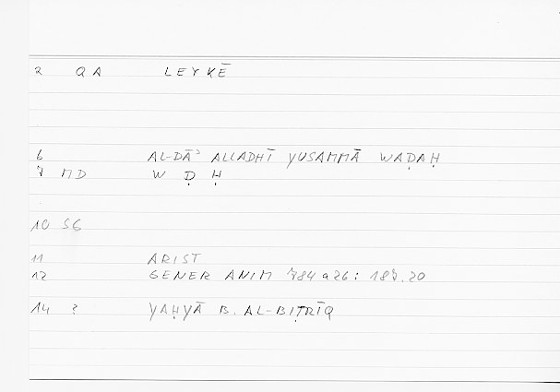 2 QA LEYKĒ
6 AL-DĀʾ ALLADHĪ YUSAMMĀ WAḌAḤ
7 MD W Ḍ Ḥ
10 SG
11 ARIST
12 GENER ANIM 784a26: 187.20
14 ? YAḤYĀ B. AL-BIṬRĪQ